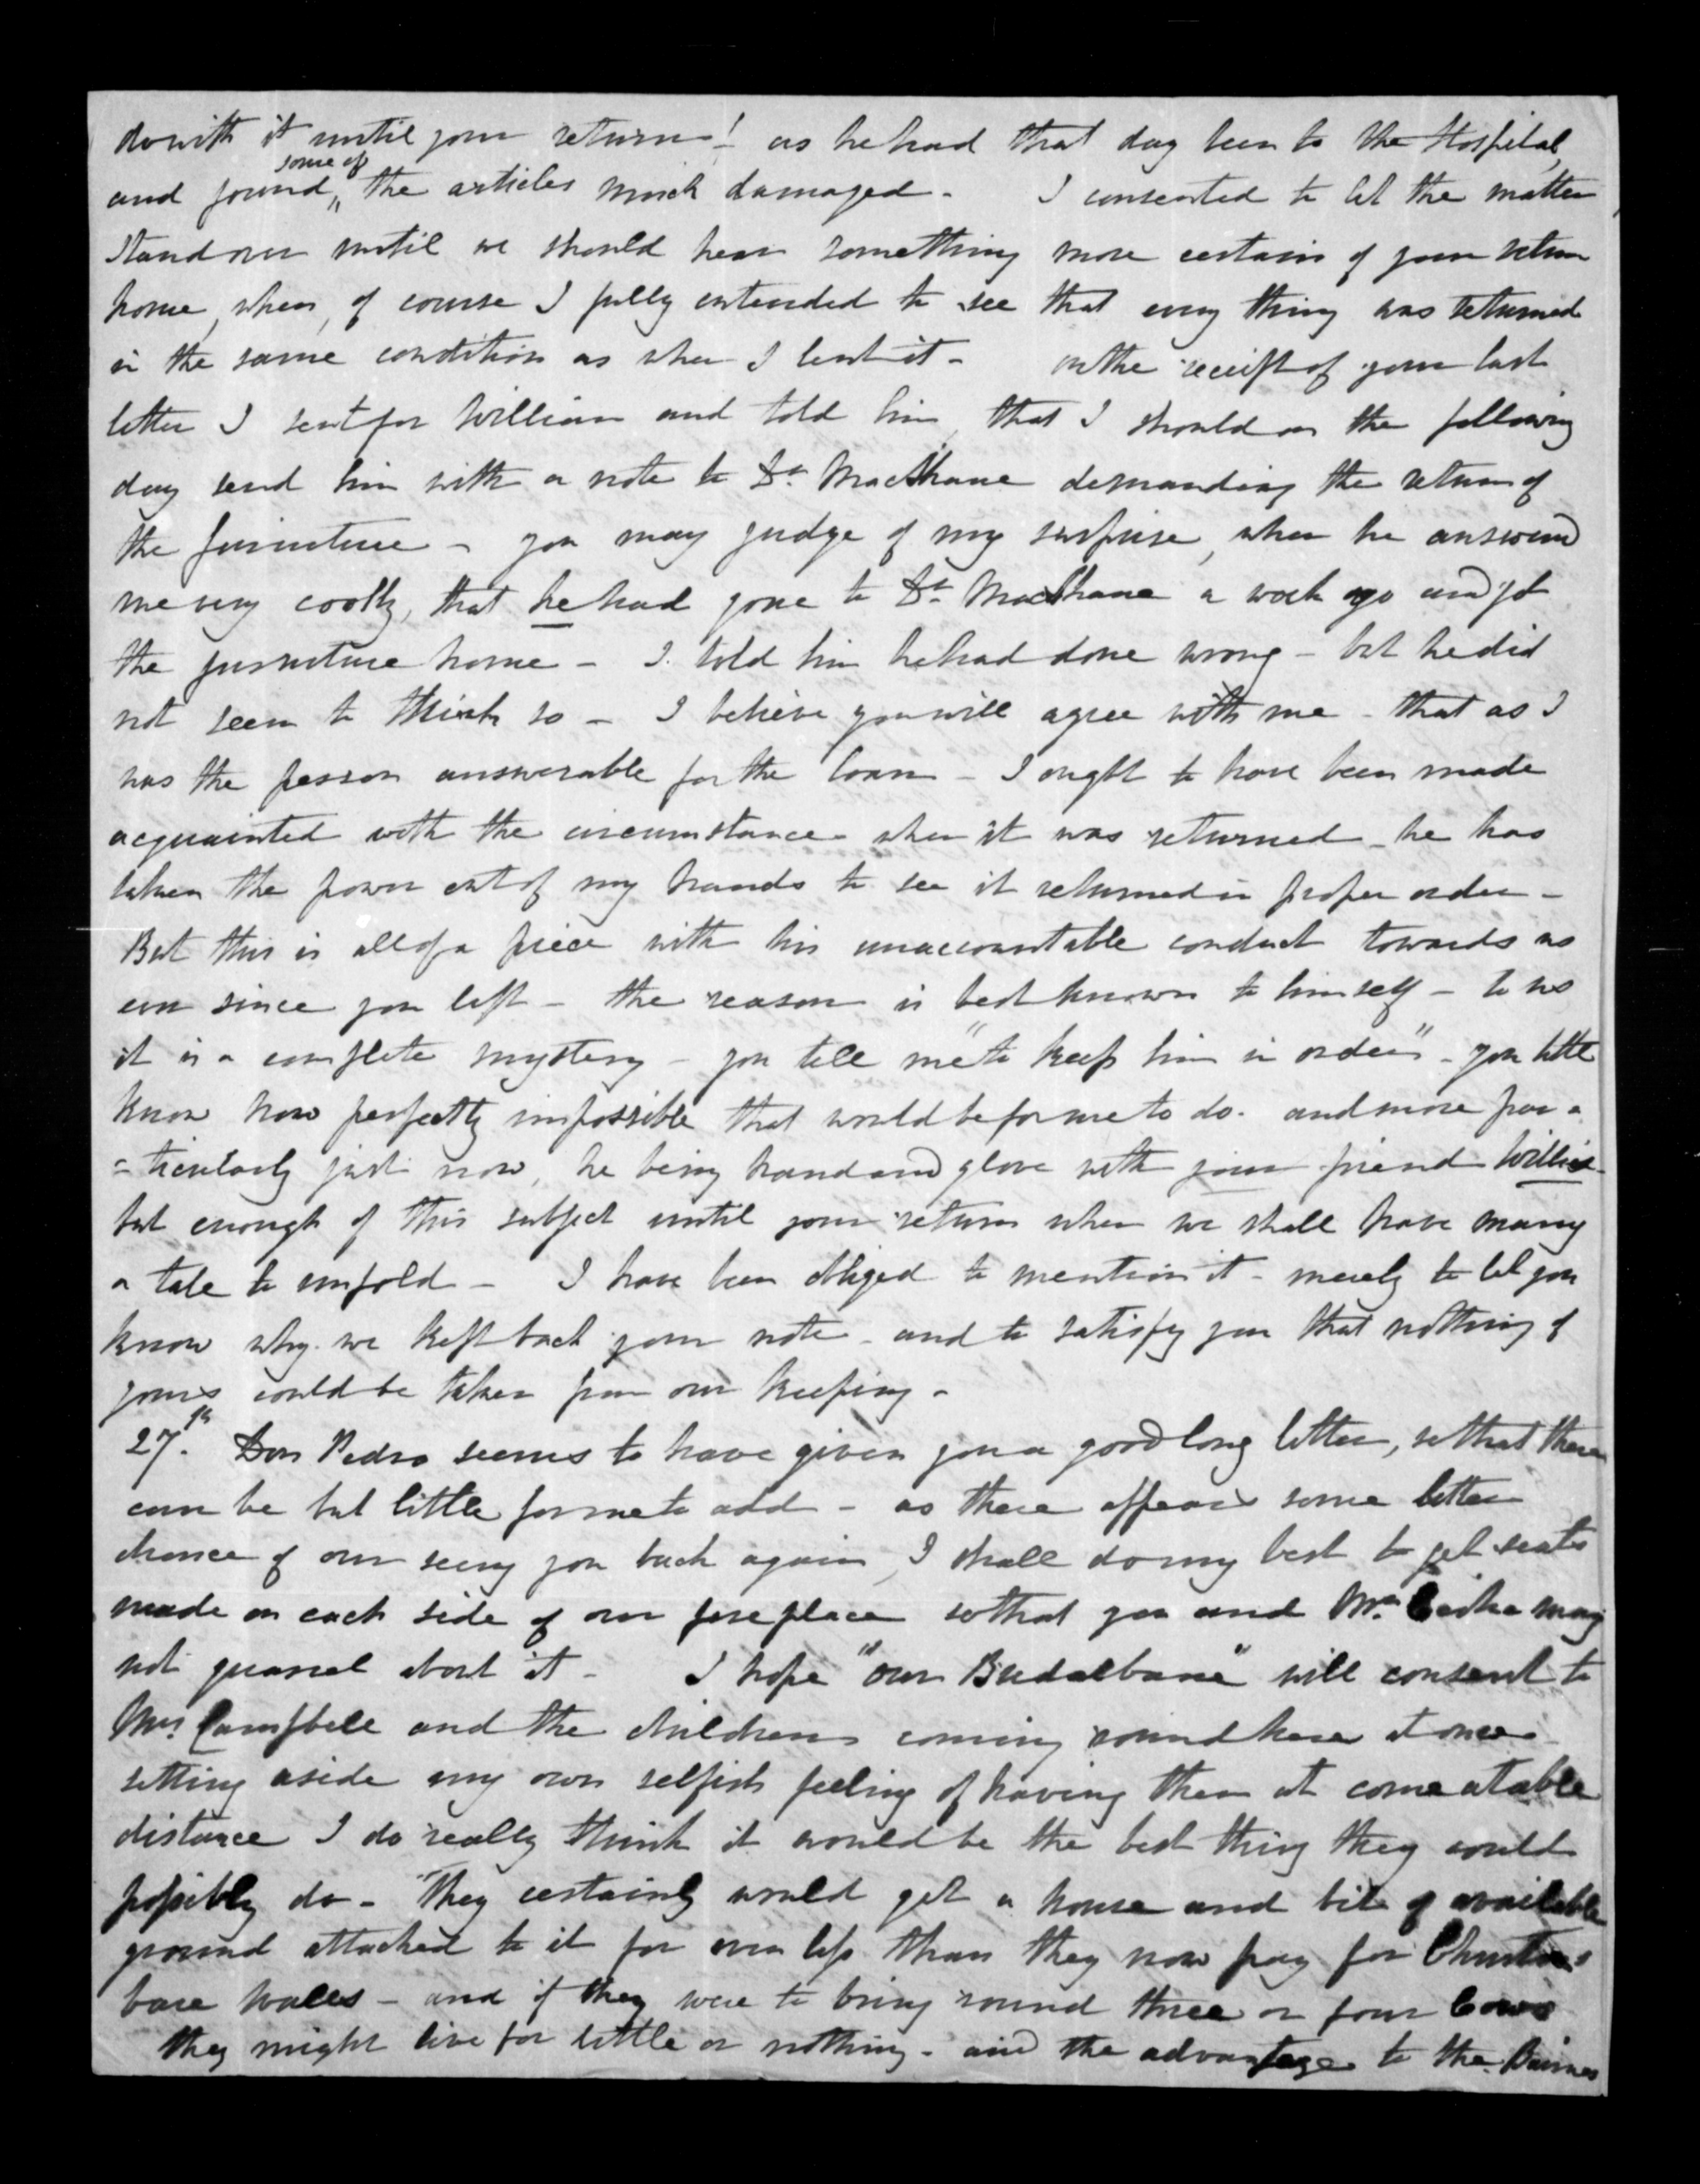 do with it until your return! as he had that day been to the Hospital,
and found some of the articles much damaged - I consented to let the matter
stand over until we should hear something more certain of your return
home, when, of course I fully intended to see that every thing was returned
in the same condition as when I lent it - on the receipt of your last
letter I sent for William and told him, that I should on the following
day send him with a note to Dr. MacShane demanding the return of
the furniture - you may judge of my surprise, when he answered
me very coolly, that he had gone to Dr. MacShane a week ago and got
the furniture home - I told him he had done wrong - but he did
not seem to think so - I believe you will agree with me - that as I
was the person answerable for the loan - I ought to have been made
acquainted with the circumstance when it was returned - he has
taken the power out of my hands to see it returned in proper order -
But this is all of a piece with his unaccountable conduct towards us
ever since you left - the reason is best known to himself - to us
it is a complete mystery - you tell me "to keep him in order" - you little
know how perfectly impossible that would be for me to do - and more par =
= ticularly just now, he being hand and glove with your friend Willie -
but enough of this subject until your return when we shall have many
a tale to unfold - I have been obliged to mention it - merely to let you
know why we kept back your note - and to satisfy you that nothing of
yours could be taken from our keeping -
27th. Don Pedro seems to have given you a good long letter, so that there
can be but little for me to add - as there appears some better
chance of our seeing you back again, I shall do my best to get seats
made on each side of our fire place so that you and Mrs. may
not quarrel about it - I hope "our Bredalbane" will consent to
Mrs Campbell and the children coming round here at once -
setting aside my own selfish feeling of having them at comeatable
distance I do really think it would be the best thing they could
possibly do - They certainly would get a house and bit of available
ground attached to it for even less than they now pay for
bare walls - and if they were to bring round three or four Cows
they might live for little or nothing - and the advantage to the Bairnes